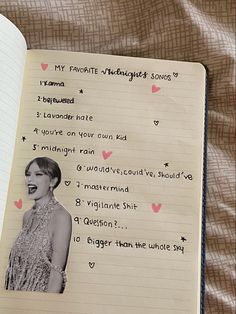 MY FAVORITE Midnights SONGS
1 Karma
2 bejeweled
3 Lavander haze
4 you're on your own kid
5 midnight rain
6 would've, could've, should've
7 mastermind
8 Vigilante Shit
9 Question?...
10 Bigger than the whole sky